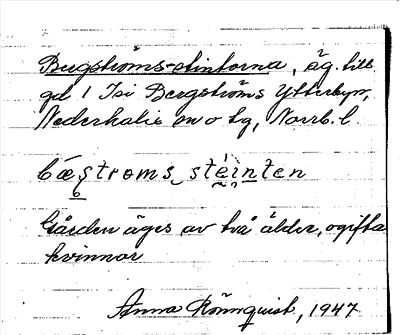 Bergströms-stintorna, äg. till
gd 1 Isi Bergströms Ytterbyn,
Nederkalix sn o tg, Norrb. l.
bæʂtroms steinten
Gården äges av två äldre, ogifta
kvinnor
Anna Rönnquist, 1947